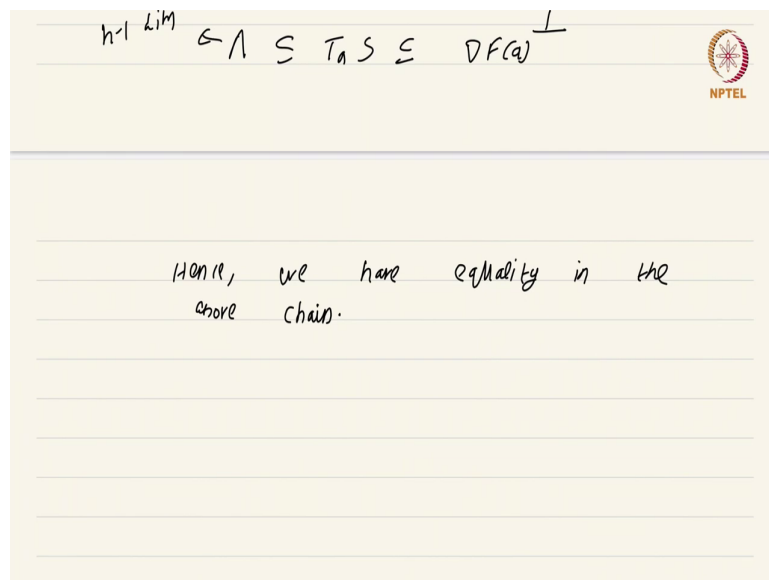 n-1 dim ← Λ ⊆ TₐS ⊆ DF(a)^⊥
NPTEL
Hence, we have equality in the
above chain.